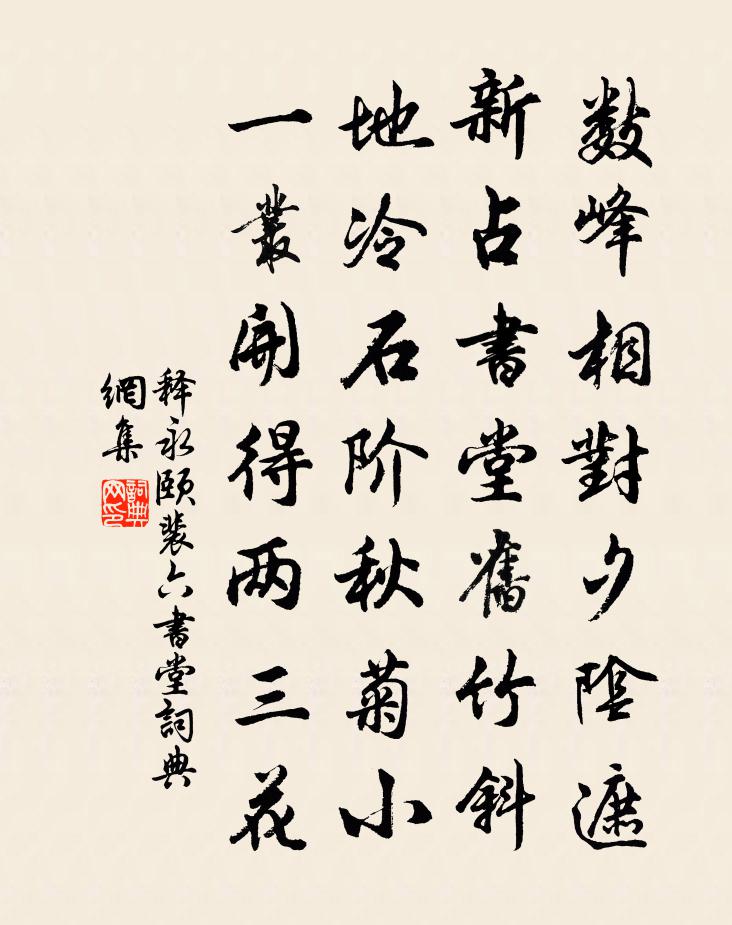 数峰相對夕陰遮
新占書堂舊竹斜
地冷石阶秋菊小
一叢開得两三花
释永颐裴六書堂詞典
網集
詞典网印